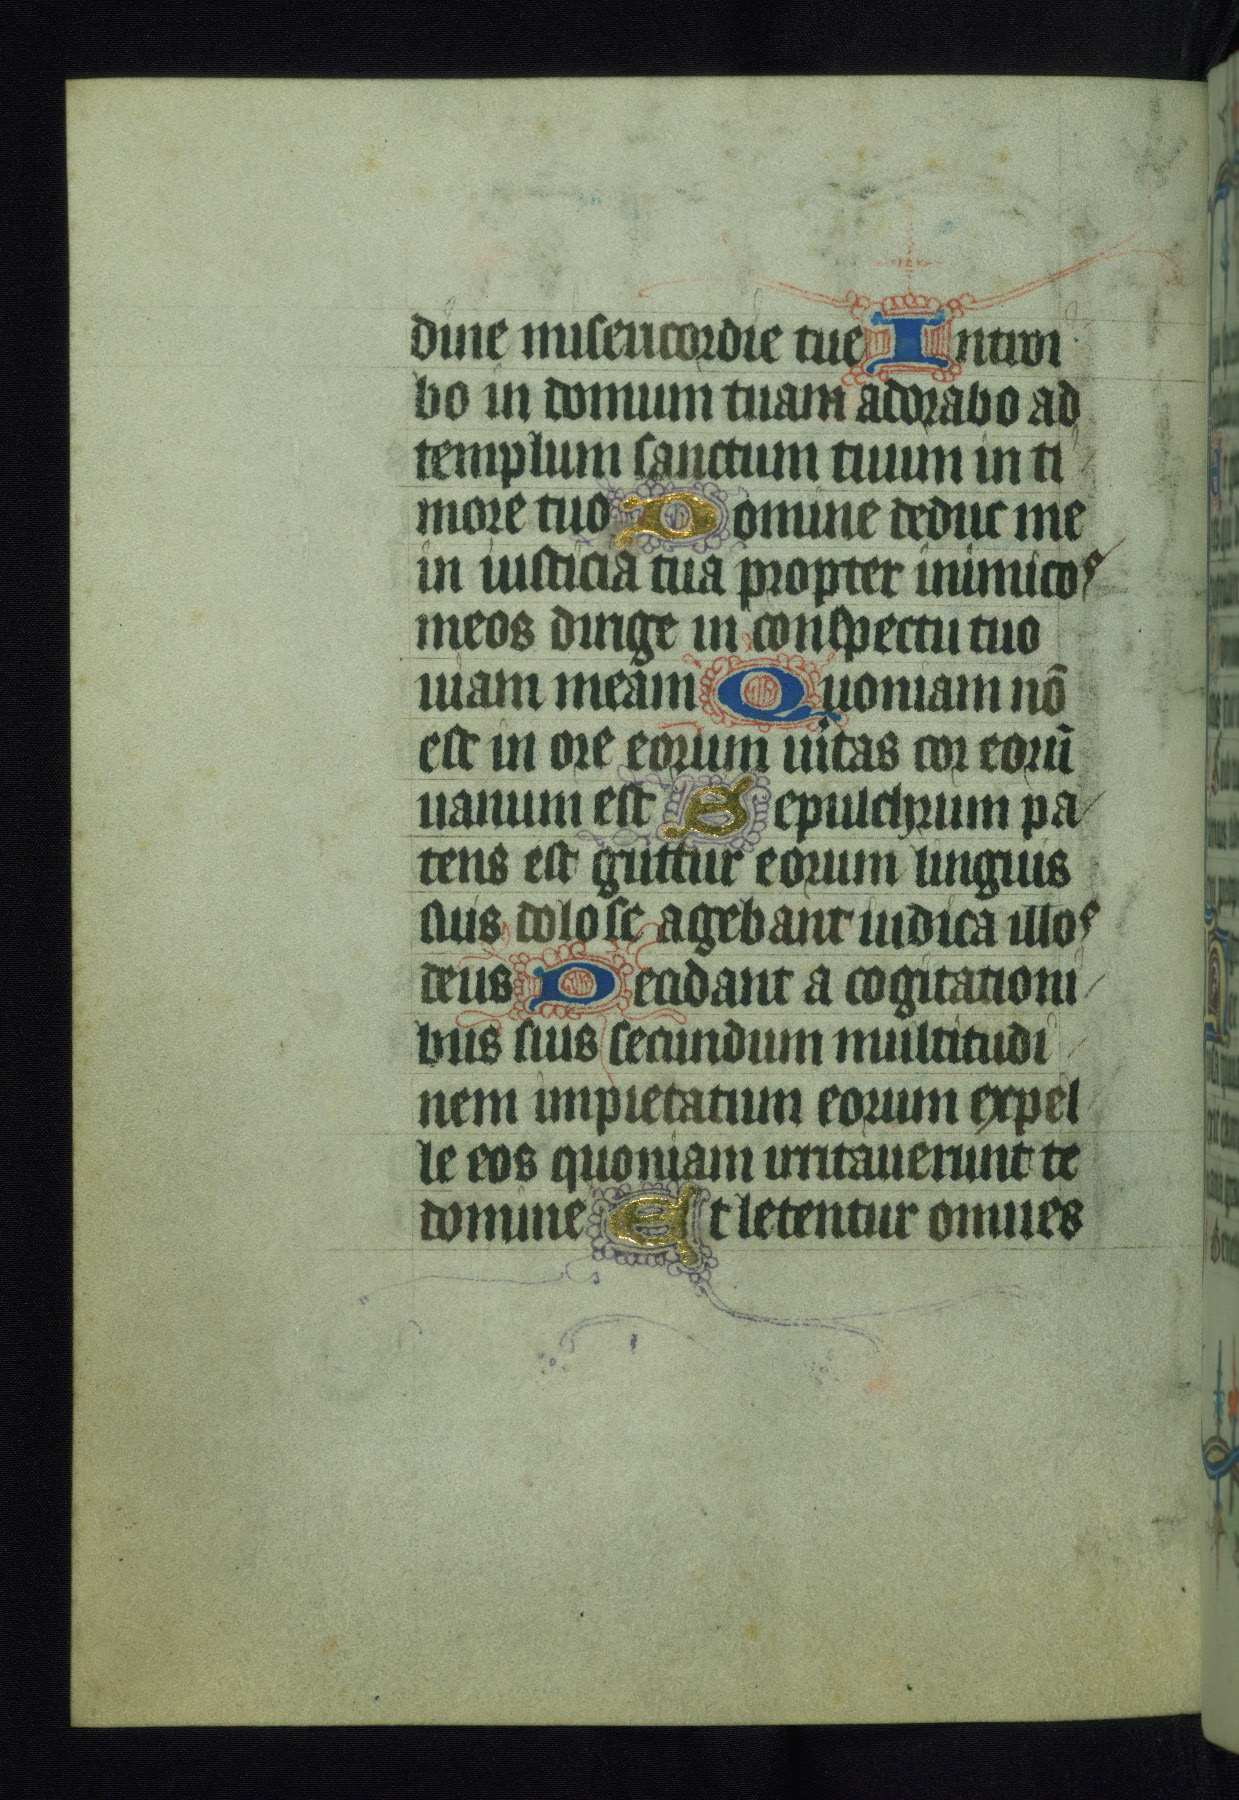 dine misericordie tue Introi
bo in domum tuam adorabo ad
templum sanctum tuum in ti
more tuo Domine deduc me
in iusticia tua propter inimicos
meos dirige in conspectu tuo
uiam meam Quoniam nō
est in ore eorum uitas cor eorū
uanum est Sepulchrum pa
tens est guttur eorum linguis
suis dolose agebant iudica illos
deus Decidant a cogitationi
bus suis secundum multitudi
nem impietatum eorum expel
le eos quoniam irritauerunt te
domine Et letentur omnes